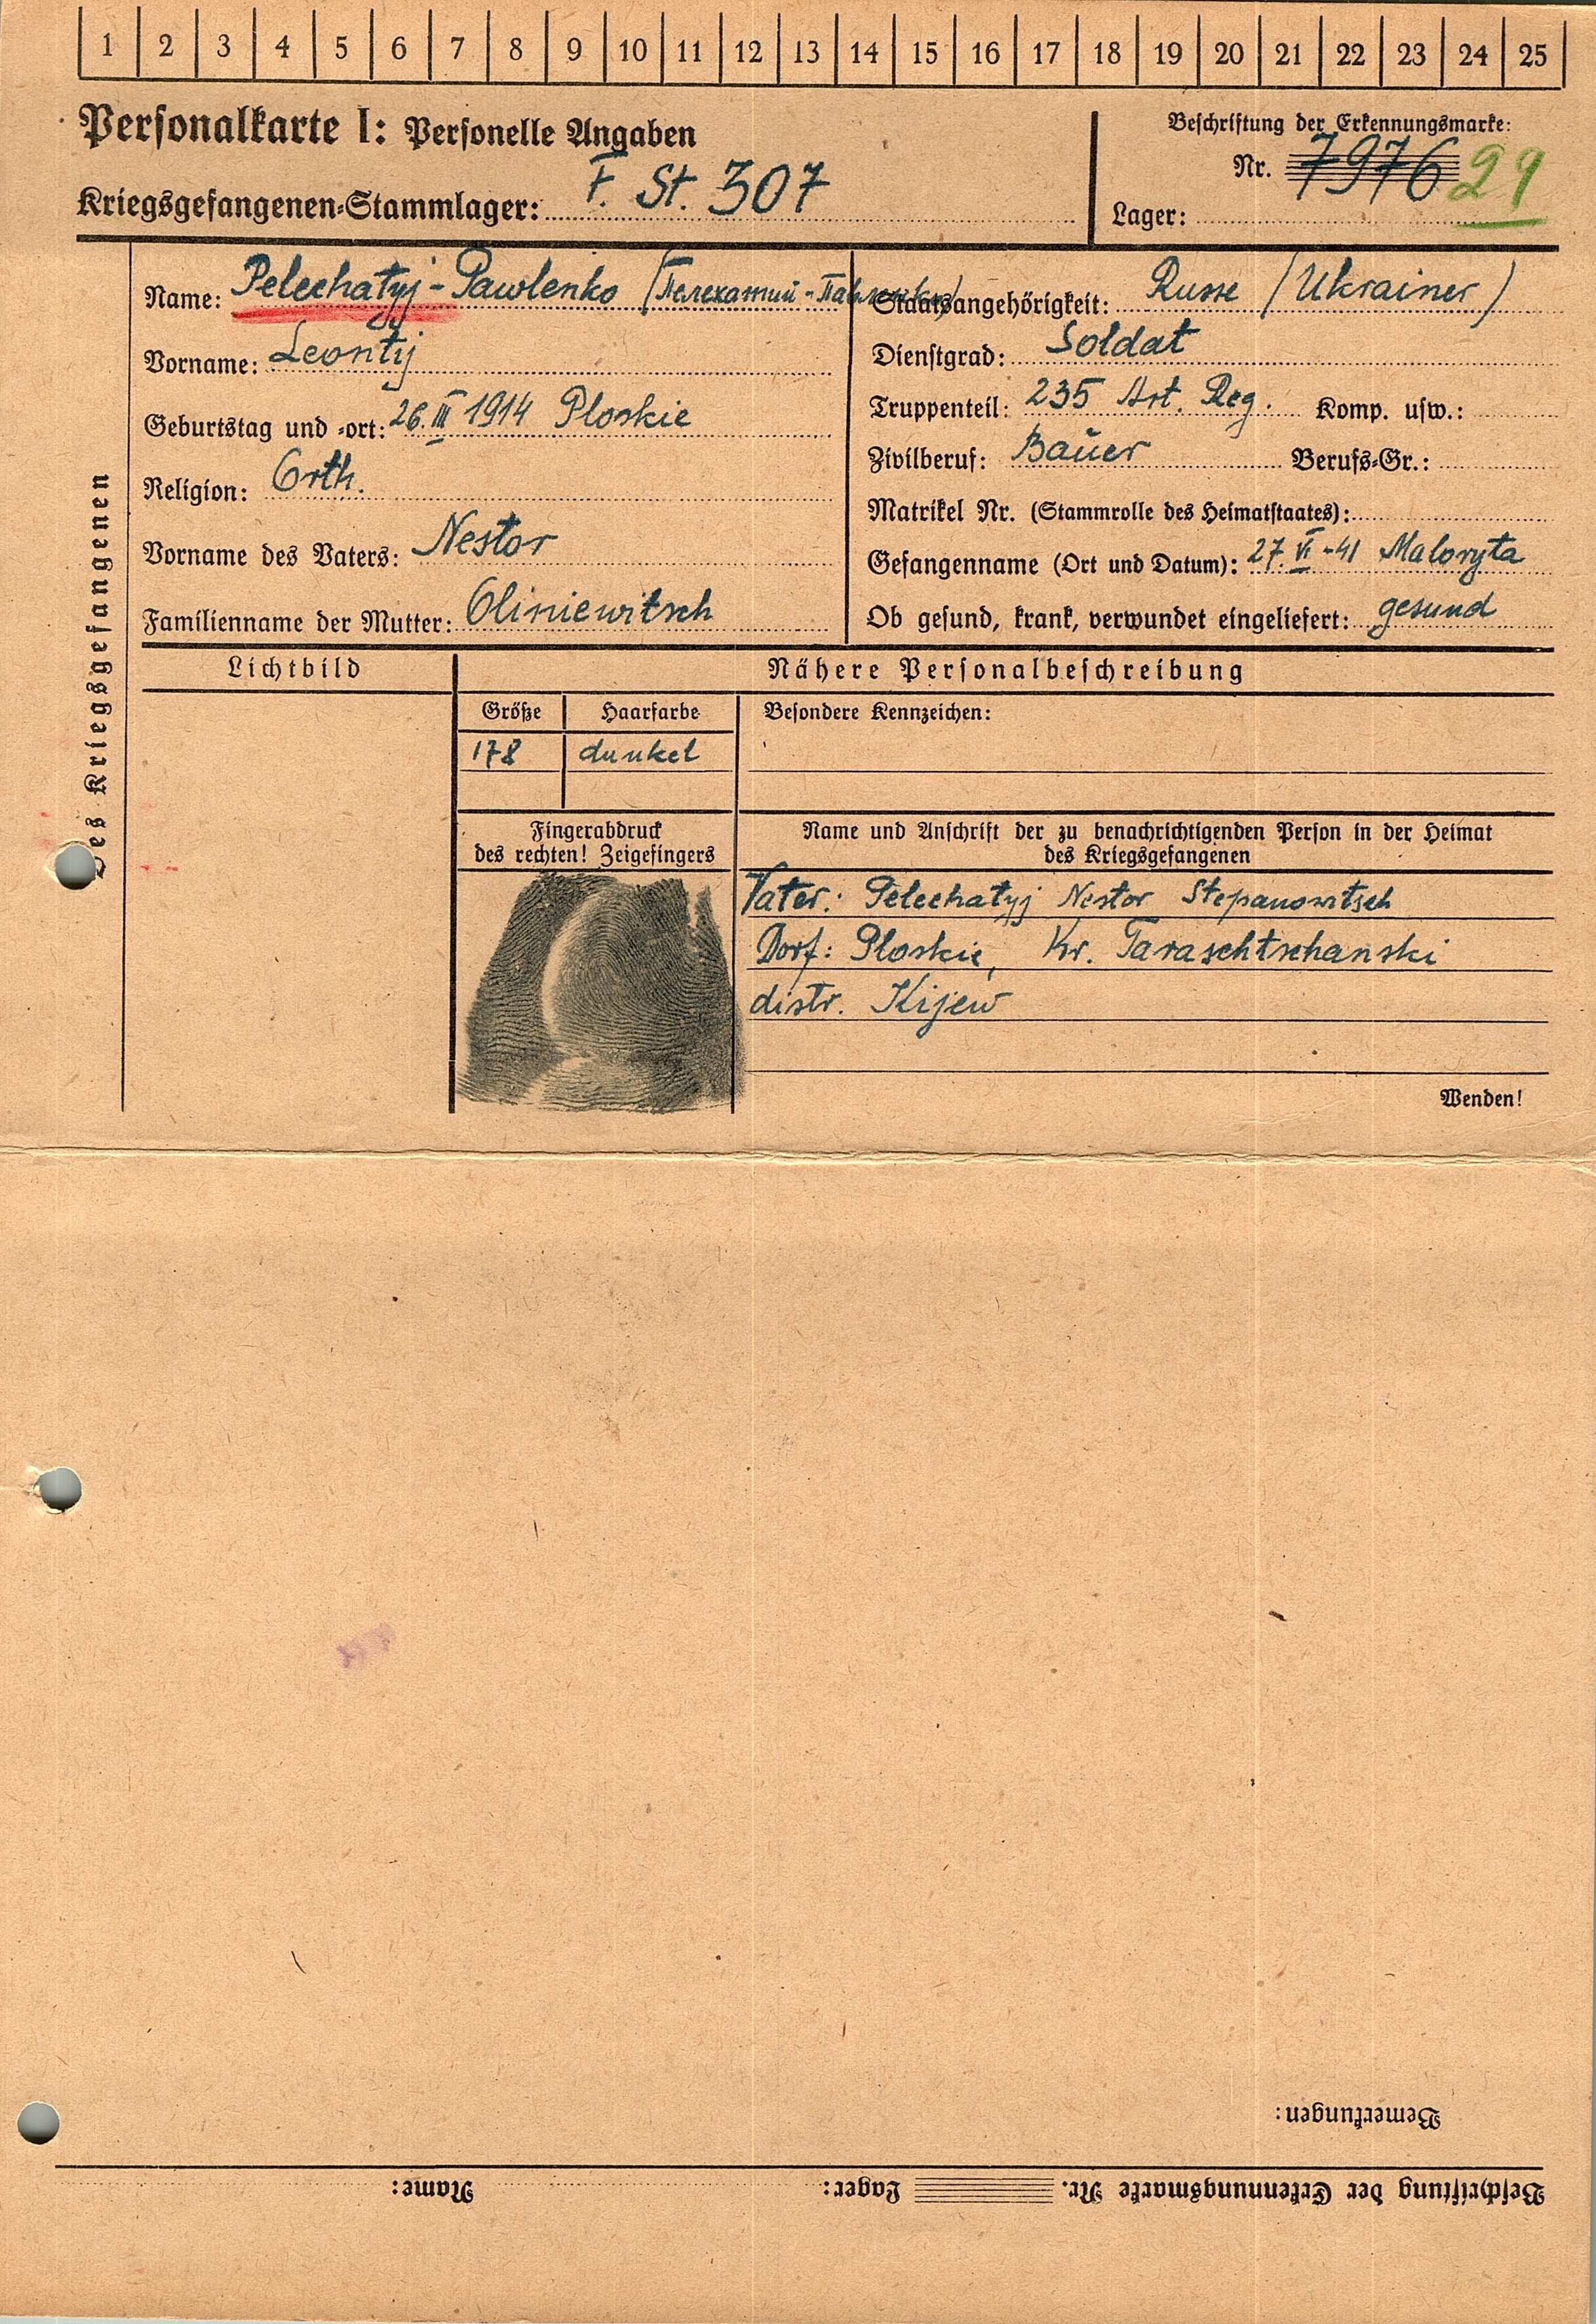 1 2 3 4 5 6 7 8 9 10 11 12 13 14 15 16 17 18 19 20 21 22 23 24 25
Personalkarte I: Personelle Angaben
Kriegsgefangenen-Stammlager: F. St. 307
Beschriftung der Erkennungsmarke:
Nr. 7976 29
Lager:
des Kriegsgefangenen
Name: Pelechatyj-Pawlenko (Пелехатий-Павленко)
Vorname: Leontij
Geburtstag und -ort: 26. III 1914 Ploskie
Religion: Orth.
Vorname des Vaters: Nestor
Familienname der Mutter: Oliniewitsch
Staatsangehörigkeit: Russe (Ukrainer)
Dienstgrad: Soldat
Truppenteil: 235 Art. Reg. Komp. usw.:
Zivilberuf: Bauer Berufs-Gr.:
Matrikel Nr. (Stammrolle des Heimatstaates):
Gefangenname (Ort und Datum): 27. VI -41 Maloryta
Ob gesund, krank, verwundet eingeliefert: gesund
Lichtbild
Nähere Personalbeschreibung
Größe Haarfarbe Besondere Kennzeichen:
178 dunkel
Fingerabdruck
des rechten! Zeigefingers
Name und Anschrift der zu benachrichtigenden Person in der Heimat
des Kriegsgefangenen
Vater: Pelechatyj Nestor Stepanowitsch
Dorf: Ploskie, Kr. Taraschtschanski
distr. Kijew
Wenden!
Bemerkungen:
Beschriftung der Erkennungsmarke Nr. Lager: Name: